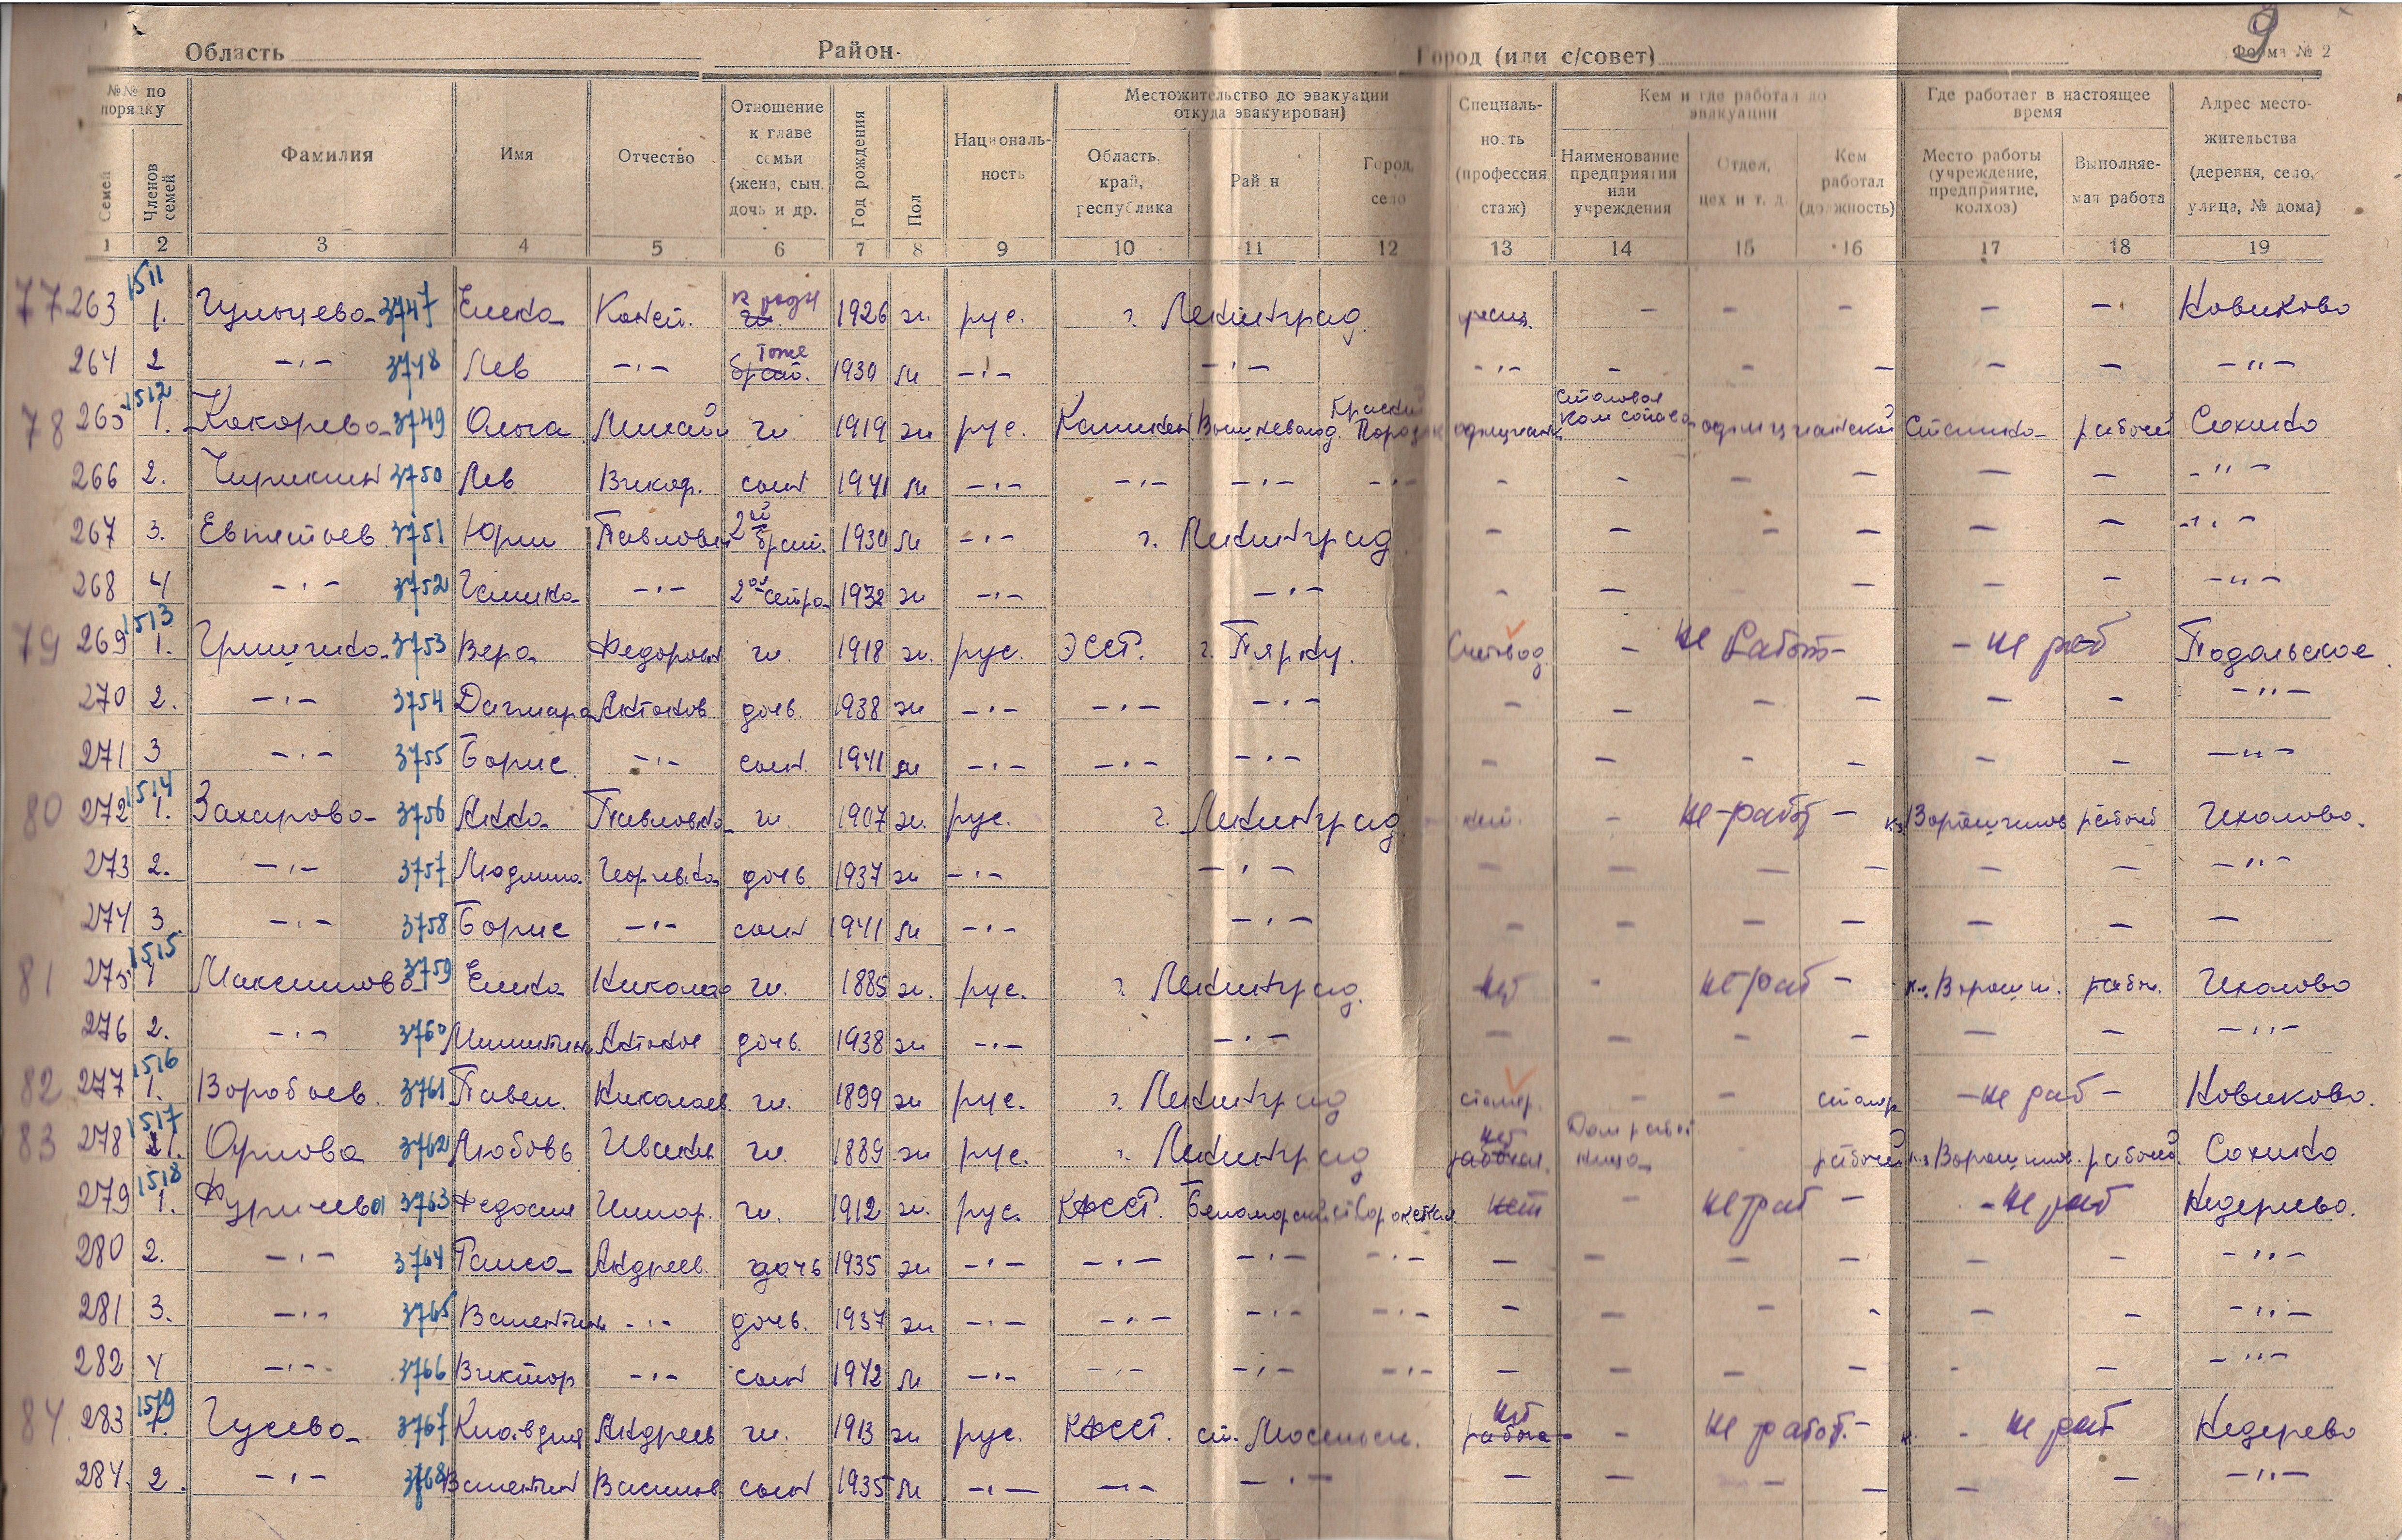 9
Область Район Город (или с/совет) Форма № 2
№№ по порядку
Семей
Членов семей
Фамилия
Имя
Отчество
Отношение к главе семьи (жена, сын, дочь и др.
Год рождения
Пол
Националь-ность
Местожительство до эвакуации откуда эвакуирован)
Область, край, республика
Район
Город, село
Специаль-ность (профессия, стаж)
Кем и где работал до эвакуации
Наименование предприятия или учреждения
Отдел, цех и т. д.
Кем работал (должность)
Где работает в настоящее время
Место работы (учреждение, предприятие, колхоз)
Выполняе-мая работа
Адрес место-жительства (деревня, село, улица, № дома)
1 2 3 4 5 6 7 8 9 10 11 12 13 14 15 16 17 18 19
77 263 1511 1. 3747 Елена 1926 ж. рус. г. Ленинград - - - - - Новиково
264 2 -"- 3748 Лев -"- тоже брат. 1930 м -"- -"- -"- - - - - - -"-
78 265 1512 1. Кокорева 3749 Ольга Михай гл. 1919 ж рус. Калинин Вышневолод. столовая официант официанткой рабочей Сохино
266 2. Чирикин 3750 Лев Виктор. сын 1941 м -"- -"- -"- -"- - - - - - - -"-
267 3. Евпятьев 3751 Юрий Павлович 2ой брат. 1930 м -"- г. Ленинград - - - - - -"-
268 4 -"- 3752 Галина -"- 2ая сестра 1932 ж -"- -"- - - - - - -"-
79 269 1513 1. 3753 Вера Федоровн гл. 1918 ж. рус. ЭССР. г. Пярну. Счетовод - не работ - - не раб Подольское
270 2. -"- 3754 Дагмара Антонов. дочь 1938 ж -"- -"- -"- - - - - - - -"-
271 3 -"- 3755 Борис -"- сын. 1941 м -"- -"- -"- - - - - - - -"-
80 272 1514 1. Захарова 3756 Анна Павловна гл. 1907 ж. рус. г. Ленинград - не работ - Ворошилов рабочей Чехолово.
273 2. -"- 3757 Людмила Георгиевна дочь 1937 ж -"- -"- - - - - - - -"-
274 3. -"- 3758 Борис -"- сын 1941 м -"- -"- - - - - - - -
81 275 1515 1 Максимова 3759 Елена Николаев гл. 1885 ж. рус. г. Ленинград. нет - не раб - к. Ворошил. рабоч. Чехолово
276 2. -"- 3760 Антонов дочь 1938 ж -"- -"- - - - - - - -"-
82 277 1516 1. Воробьев. 3761 Павел Николаев. гл. 1899 ж рус. г. Ленинград столяр. - - столяр - не раб - Новиково.
83 278 1517 1. Орлова 3762 Любовь Иванов гл. 1889 ж рус. г. Ленинград нет рабочая. рабочей Ворошилов. рабочей. Сохино
279 1518 1. Фуричева 3763 Федосия гл. 1912 ж. рус. КФССР. Беломорский нет - не раб - - не раб Недерево.
280 2. -"- 3764 Таиса Андреев. дочь 1935 ж -"- -"- -"- -"- - - - - - - -"-
281 3. -"- 3765 Валентин -"- дочь. 1937 ж -"- -"- -"- -"- - - - - - - -"-
282 4 -"- 3766 Виктор -"- сын 1942 м -"- -"- -"- -"- - - - - - - -"-
84. 283 1519 1. Гусева 3767 Клавдия Андреев гл. 1913 ж рус. КФССР. ст. нет рабоч - не работ. - - не раб Недерево
284. 2. -"- 3768 Валентин Васильев сын 1935 м -"- -"- -"- - - - - - - -"-